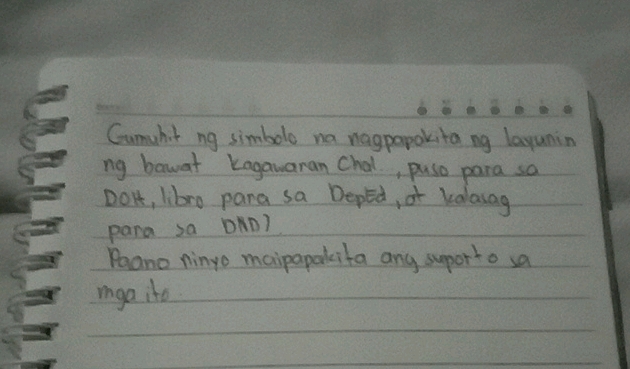 Gumuhit ng simbolo na nagpapakita ng layunin
ng bawat kagawaran Chal., puso para sa
DOH, libro para sa DepEd, at kalasag
para sa DND?
Paano ninyo maipapakita ang suporto sa
mga ito.